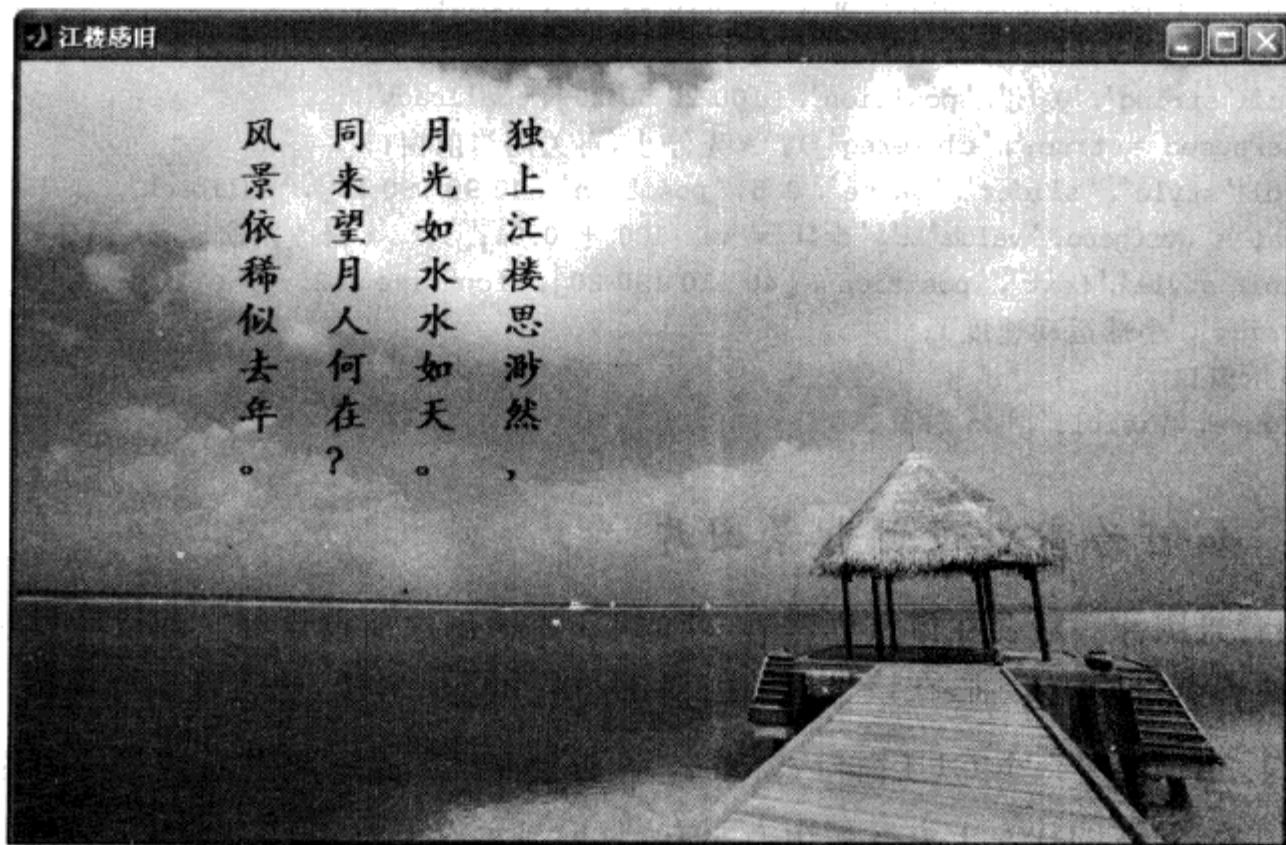 江楼感旧
独上江楼思渺然，
月光如水水如天。
同来望月人何在？
风景依稀似去年。